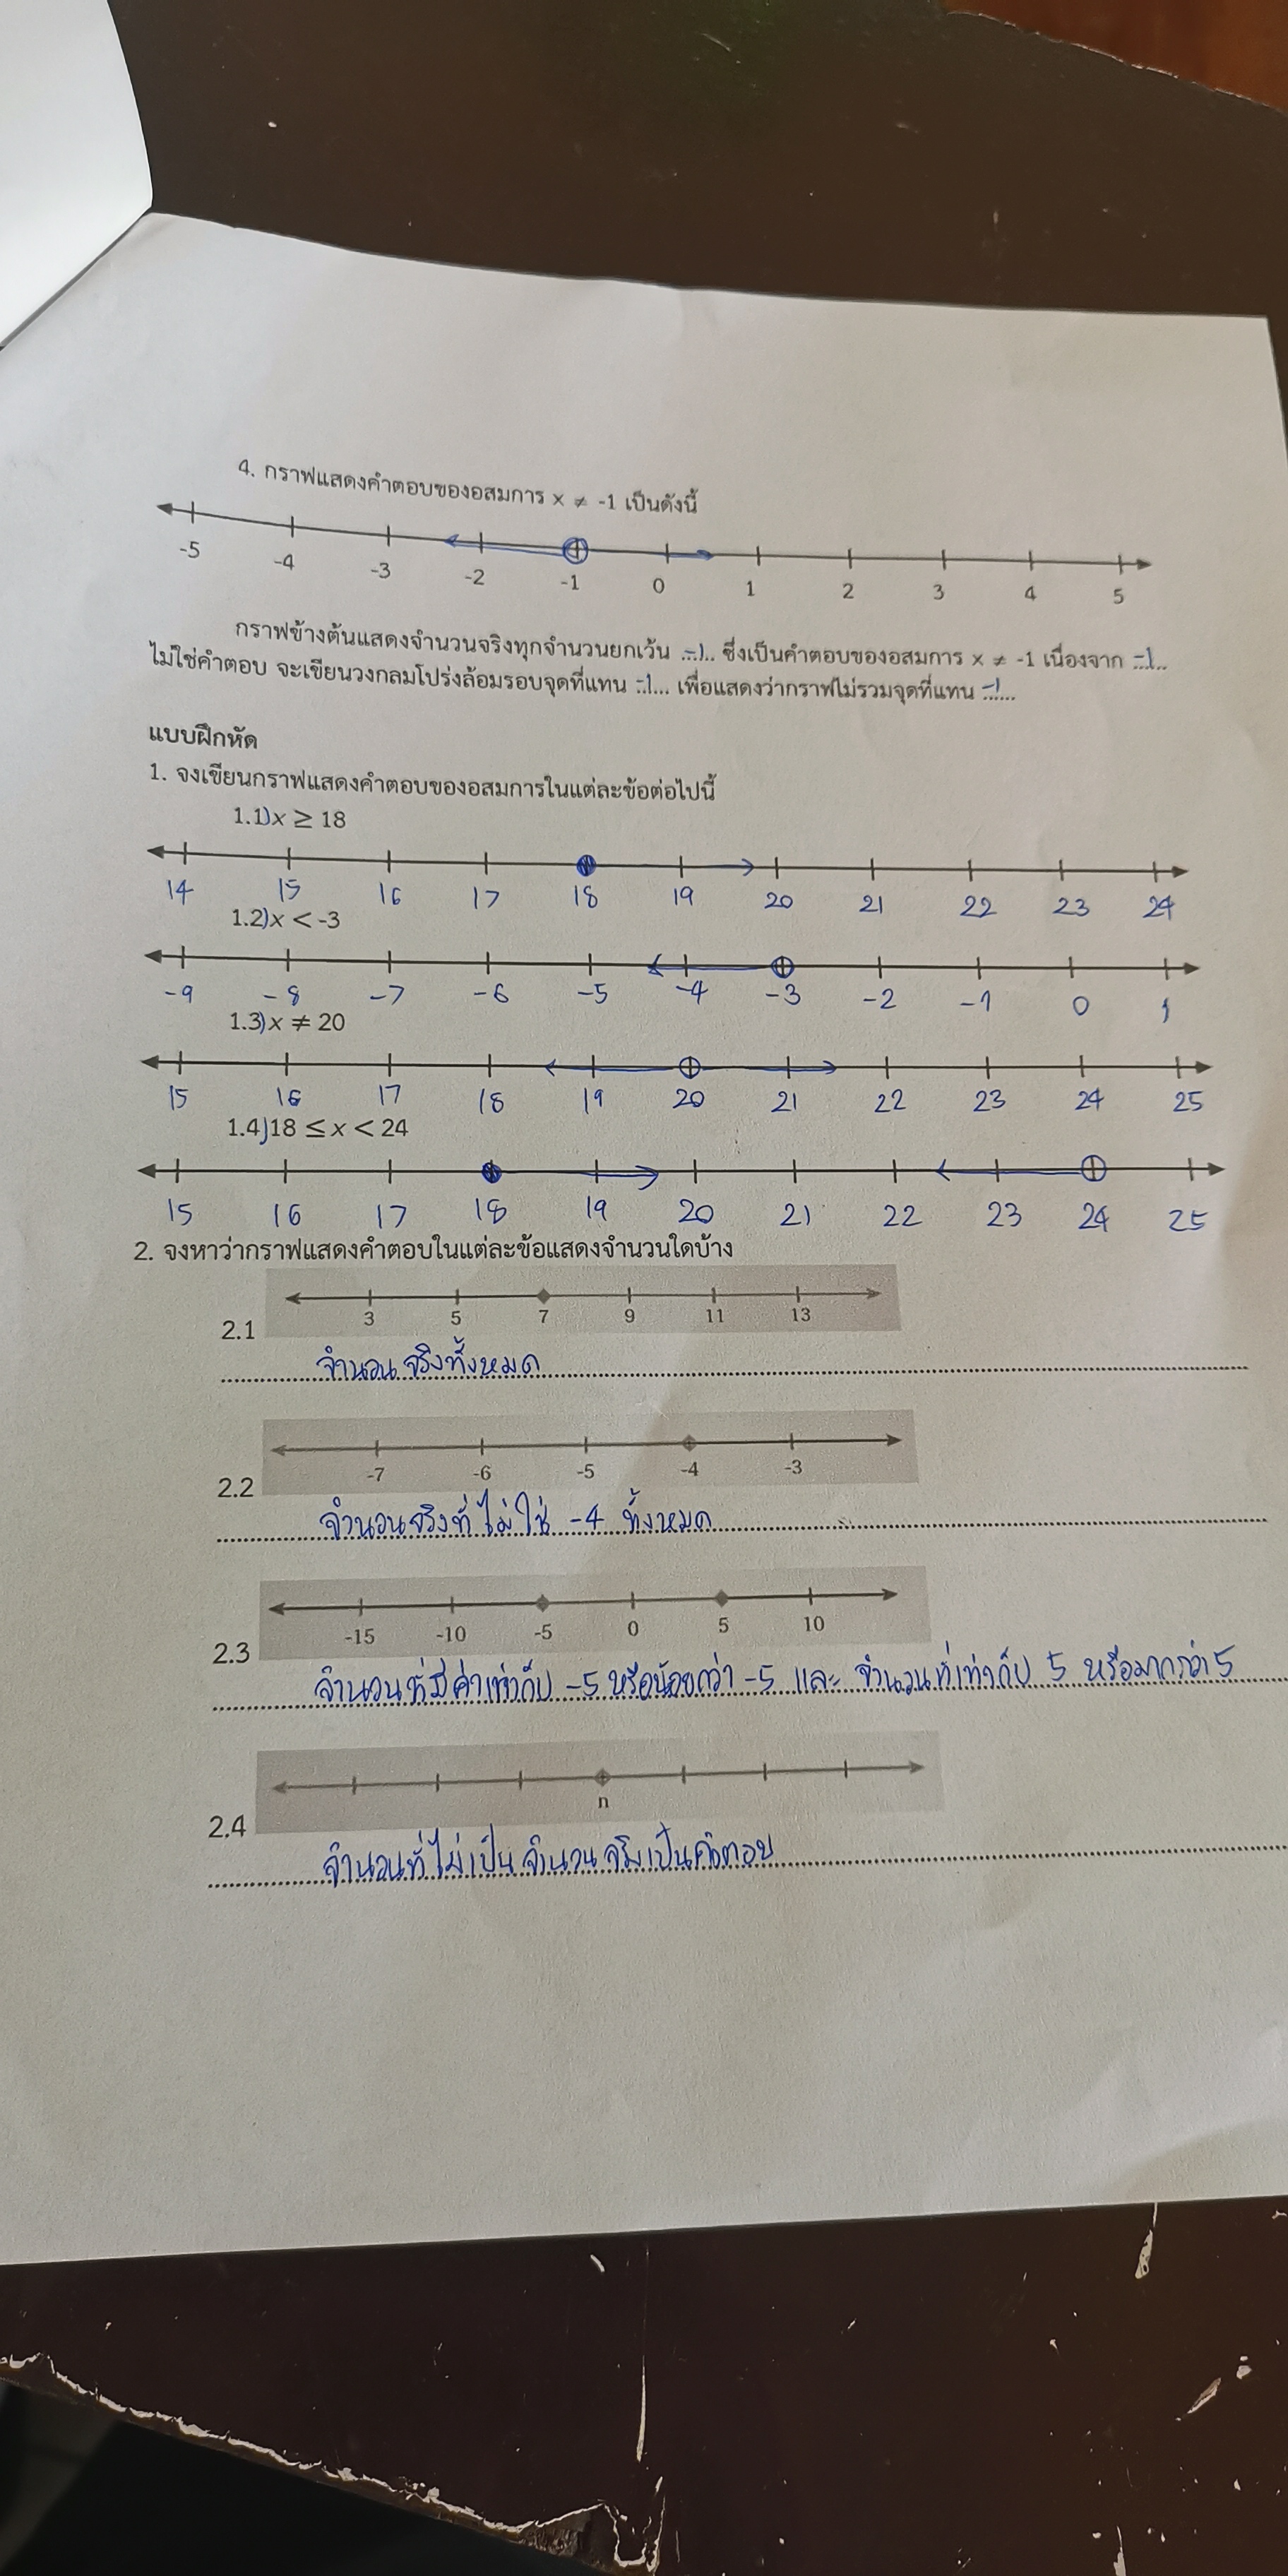 4. กราฟแสดงคำตอบของอสมการ x ≠ -1 เป็นดังนี้
-5 -4 -3 -2 -1 0 1 2 3 4 5
กราฟข้างต้นแสดงจำนวนจริงทุกจำนวนยกเว้น ..-1.. ซึ่งเป็นคำตอบของอสมการ x ≠ -1 เนื่องจาก ..-1..
ไม่ใช่คำตอบ จะเขียนวงกลมโปร่งล้อมรอบจุดที่แทน ..-1... เพื่อแสดงว่ากราฟไม่รวมจุดที่แทน ..-1...
แบบฝึกหัด
1. จงเขียนกราฟแสดงคำตอบของอสมการในแต่ละข้อต่อไปนี้
1.1)x ≥ 18
14 15 16 17 18 19 20 21 22 23 24
1.2)x < -3
-9 -8 -7 -6 -5 -4 -3 -2 -1 0 1
1.3)x ≠ 20
15 16 17 18 19 20 21 22 23 24 25
1.4)18 ≤ x < 24
15 16 17 18 19 20 21 22 23 24 25
2. จงหาว่ากราฟแสดงคำตอบในแต่ละข้อแสดงจำนวนใดบ้าง
3 5 7 9 11 13
2.1
จำนวนจริงทั้งหมด
-7 -6 -5 -4 -3
2.2
จำนวนจริงที่ไม่ใช่ -4 ทั้งหมด
-15 -10 -5 0 5 10
2.3
จำนวนที่มีค่าเท่ากับ -5 หรือน้อยกว่า -5 และ จำนวนที่เท่ากับ 5 หรือมากกว่า 5
n
2.4
จำนวนที่ไม่เป็นจำนวนจริงเป็นคำตอบ